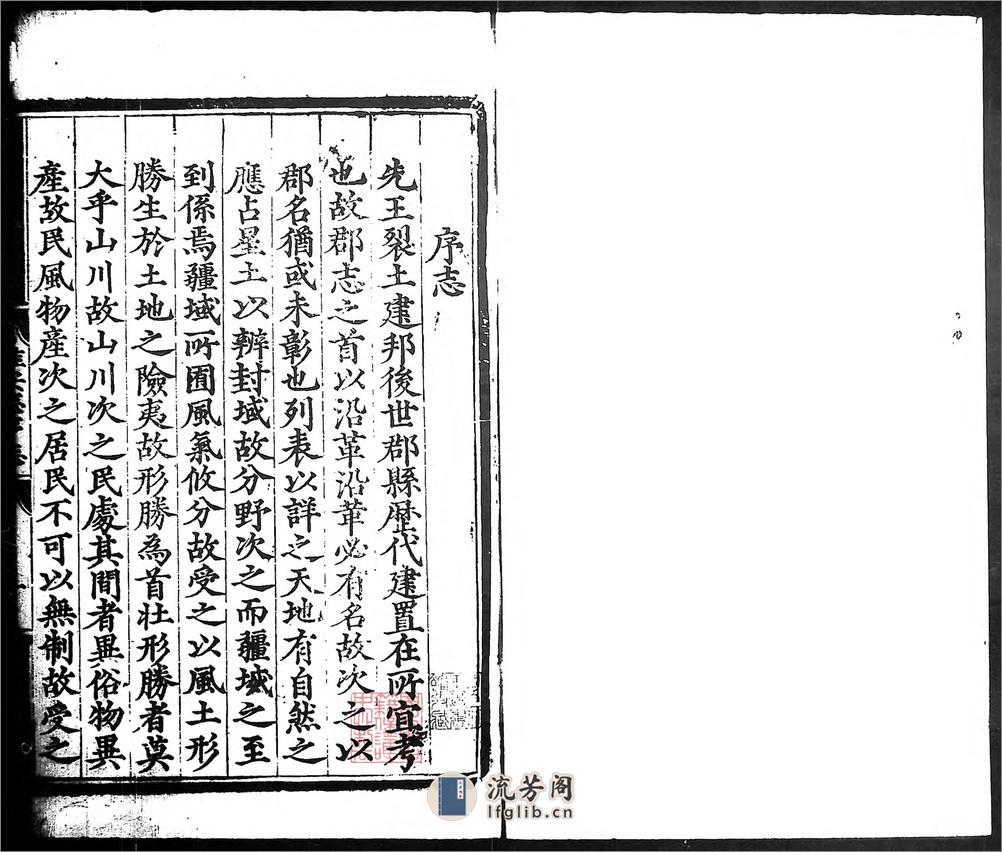 序志
先王裂土建邦後世郡縣歷代建置在所宜考
也故郡志之首以沿革沿革必有名故次之以
郡名猶或未彰也列表以詳之天地有自然之
應占星土以辨封域故分野次之而疆域之至
到係焉疆域所囿風氣攸分故受之以風土形
勝生於土地之險夷故形勝為首壯形勝者莫
大乎山川故山川次之民處其間者異俗物異
產故民風物產次之居民不可以無制故受之
流芳阁
lfglib.cn